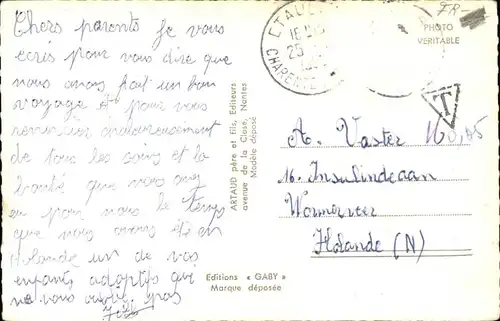 Chers parents Je vous
écris pour vous dire que
nous avons fait un bon
voyage et pour vous
remercier chaleureusement
de tous les soins et la
bonté que vous avez
eu pour nous le temps
que nous avons été en
Holande un de vos
enfants adoptifs qui
ne vous oublie pas
ARTAUD père et fils, Editeurs
avenue de la Close, Nantes
Modèle déposé
Editions « GABY »
Marque déposée
PHOTO
VERITABLE
T
A. Vaster
16. Insulindeaan
Wormerveer
Holande (N)